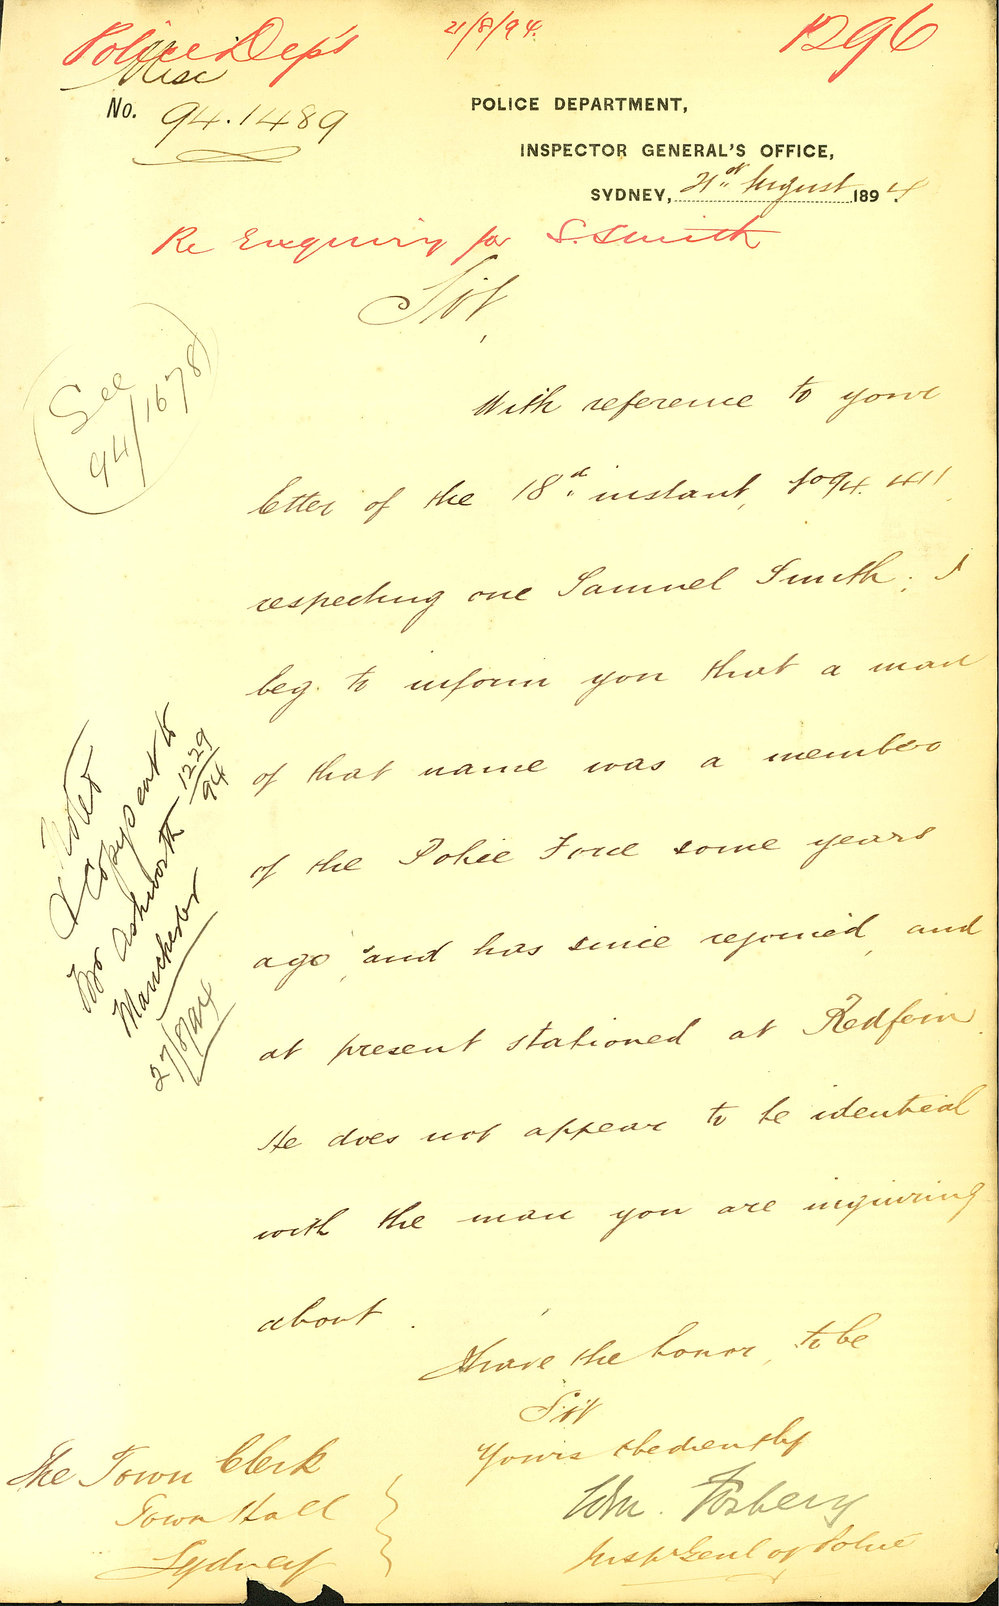 Police Dep't
21/8/94.
1296
Misc
No. 94.1489
POLICE DEPARTMENT,
INSPECTOR GENERAL'S OFFICE,
SYDNEY, 21st August 1894.
Re Enquiry for S. Smith
Sir,
See
94/1678
With reference to your
letter of the 18th instant, 94.411,
respecting one Samuel Smith; I
beg to inform you that a man
of that name was a member
of the Police Force some years
ago, and has since rejoined, and
at present stationed at Redfern.
He does not appear to be identical
with the man you are inquiring
about.
Noted
& Copy sent to
Mr Ashworth 1229/94
Manchester
27/8/94
I have the honor, to be
Sir
Yours obediently
Edm. Fosbery
Inspr Genl of Police
The Town Clerk
Town Hall
Sydney